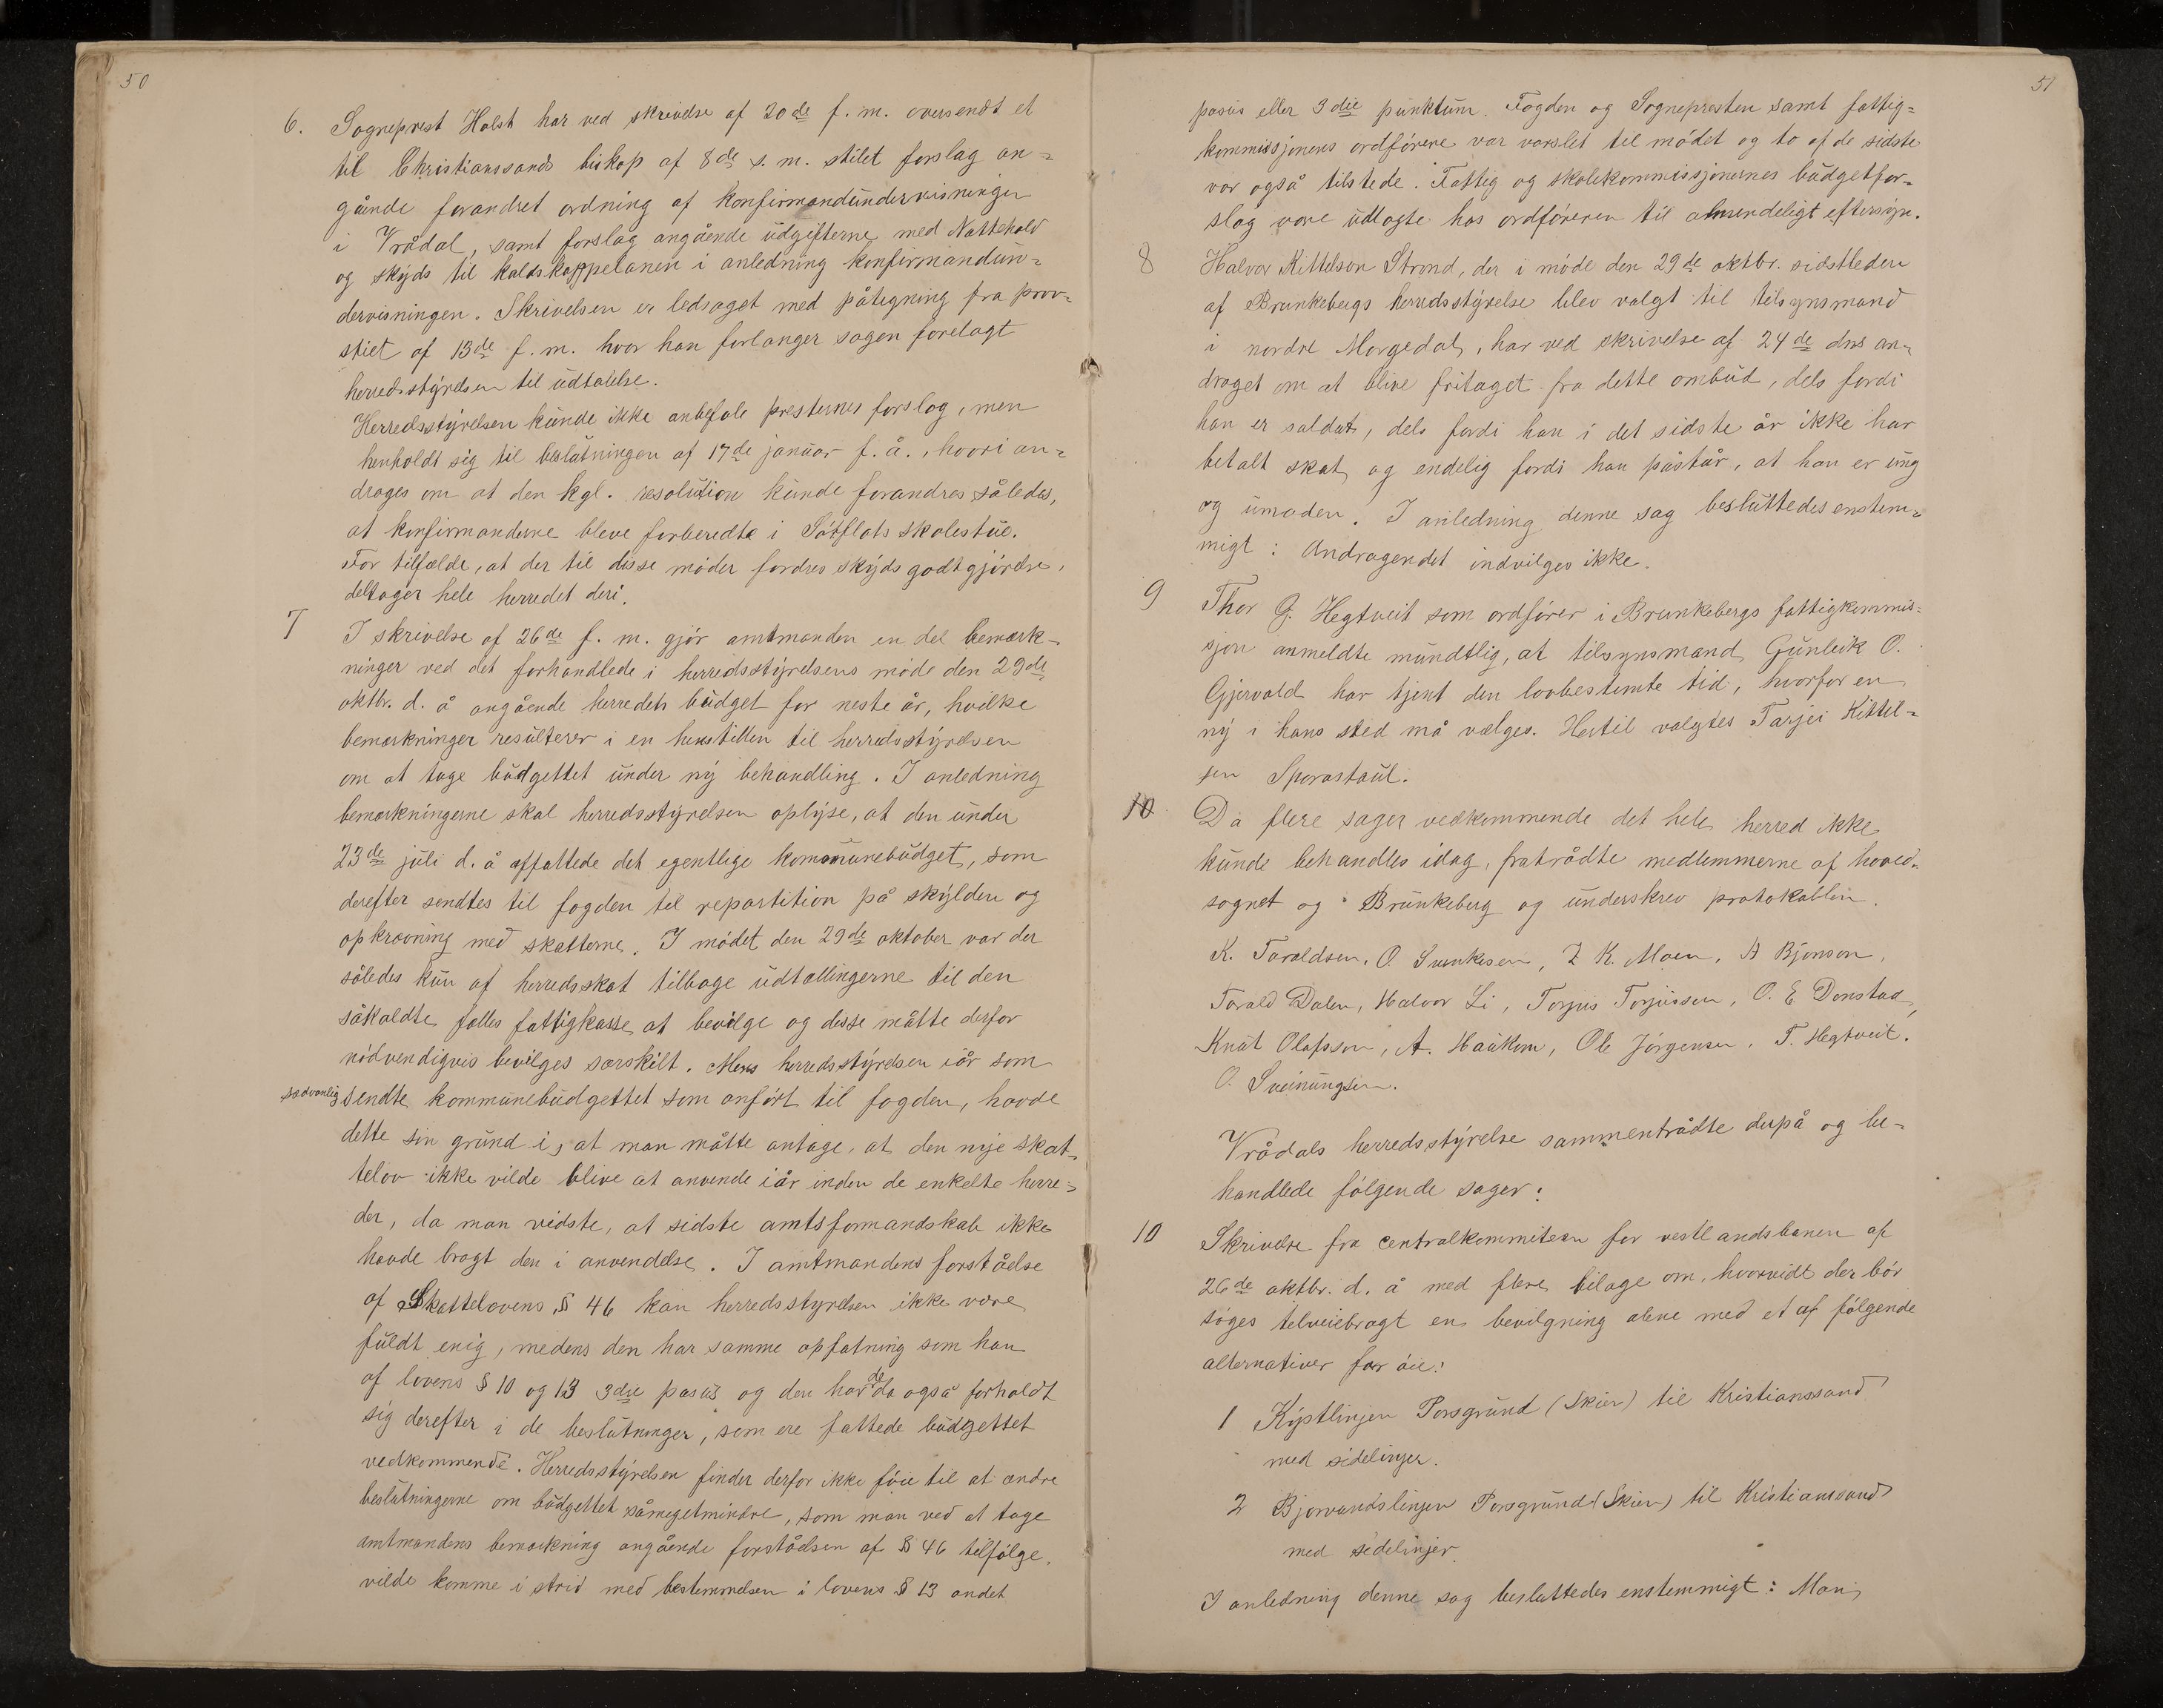 50
6. Sogneprest Holst har ved skrivelse af 20de f. m. oversendt et
til Christianssands biskop af 8de s. m. stilet forslag an=
gående forandret ordning af konfirmandundervisningen
i Vrådal, samt forslag angående udgifterne med Nattehold
og skyds til kaldskappelanen i anledning konfirmandun=
dervisningen. Skrivelsen er ledsaget med påtegning fra prov=
stiet af 13de f. m. hvor han forlanger sagen forelagt
herredsstyrelsen til udtalelse.
Herredsstyrelsen kunde ikke anbefale presternes forslag, men
henholdt sig til beslutningen af 17de januar f. å., hvori an=
droges om at den kgl. resolution kunde forandres således,
at konfirmanderne bleve forberedte i Sótflots skolestue.
For tilfælde, at der til disse móder fordres skydsgodtgjórelse,
deltager hele herredet deri.
7 I skrivelse af 26de f. m. gjór amtmanden en del bemærk=
ninger ved det forhandlede i herredsstyrelsens móde den 29de
oktbr. d. å angående herredets budget for neste år, hvilke
bemærkninger resulterer i en henstillen til herredsstyrelsen
om at tage budgettet under ny behandling. I anledning
bemærkningerne skal herredsstyrelsen oplyse, at den under
23de juli d. å affattede det egentlige kommunebudget, som
derefter sendtes til fogden til repartition på skylden og
opkrævning med skatterne. I módet den 29de oktober var der
således kun af herredsskat tilbage udtællingerne til den
såkaldte fælles fattigkasse at bevilge og disse måtte derfor
nódvendigvis bevilges særskilt. Mens herredsstyrelsen iår som
sædvanlig sendte kommunebudgettet som anfórt til fogden, havde
dette sin grund i, at man måtte antage, at den nye skat=
telov ikke vilde blive at anvende iår inden de enkelte herre=
der, da man vidste, at sidste amtsformandskab ikke
havde bragt den i anvendelse. I amtmandens forståelse
af Skattelovens § 46 kan herredsstyrelsen ikke være
fuldt enig, medens den har samme opfatning som han
af lovens § 10 og 13 3die pasus og den havde da også forholdt
sig derefter i de beslutninger, som ere fattede budgettet
vedkommende. Herredsstyrelsen finder derfor ikke fóie til at ændre
beslutningerne om budgettet såmegetmindre, som man ved at tage
amtmandens bemærkning angående forståelsen af § 46 tilfólge,
vilde komme i strid med bestemmelsen i lovens § 13 andet
51
pasus eller 3die punktum. Fogden og Sognepresten samt fattig=
kommissjonens ordfórere var varslet til módet og to af de sidste
var også tilstede. Fattig og skolekommissjonernes budgetfor=
slag vare udlagte hos ordfóreren til almindeligt eftersyn.
8 Halvor Kittelson Strond, der i móde den 29de oktbr. sidstleden
af Brunkebergs herredsstyrelse blev valgt til tilsynsmand
i nordre Morgedal, har ved skrivelse af 24de dns an=
draget om at blive fritaget fra dette ombud, dels fordi
han er soldat, dels fordi han i det sidste år ikke har
betalt skat og endelig fordi han påstår, at han er ung
og umoden. I anledning denne sag besluttedes enstem=
migt: Andragendet indvilges ikke.
9 Thor G. Hegtveit som ordfórer i Brunkebergs fattigkommis=
sjon anmeldte mundtlig, at tilsynsmand Gunleik O.
Gjervald har tjent den lovbestemte tid, hvorfor en
ny i hans sted må vælges. Hertil valgtes Tarjei Kittel=
sen Sporastaul.
10 Da flere sager vedkommende det hele herred ikke
kunde behandles idag, fratrådte medlemmerne af hoved=
sognet og Brunkeberg og underskrev protokollen.
K. Taraldsen, O. Svenkesen, Z K. Moen, A Bjonson,
Tarald Dalen, Halvor Li, Torjus Torjussen, O. E. Donstad,
Knut Olafsson, A. Haukom, Ole Jórgensen, T. Hegtveit.
O. Sveinungsen.
Vrådals herredsstyrelse sammentrådte derpå og be=
handlede fólgende sager:
10 Skrivelse fra centralkommiteen for vestlandsbanen af
26de oktbr. d. å med flere bilage om, hvorvidt der bór
sóges tilveiebragt en bevilgning alene med et af fólgende
alternativer for óie:
1 Kystlinjen Porsgrund (Skien) til Kristianssand
med sidelinjer.
2 Bjorvandslinjen Porsgrund (Skien) til Kristianssand
med sidelinjer.
I anledning denne sag besluttedes enstemmigt: Man